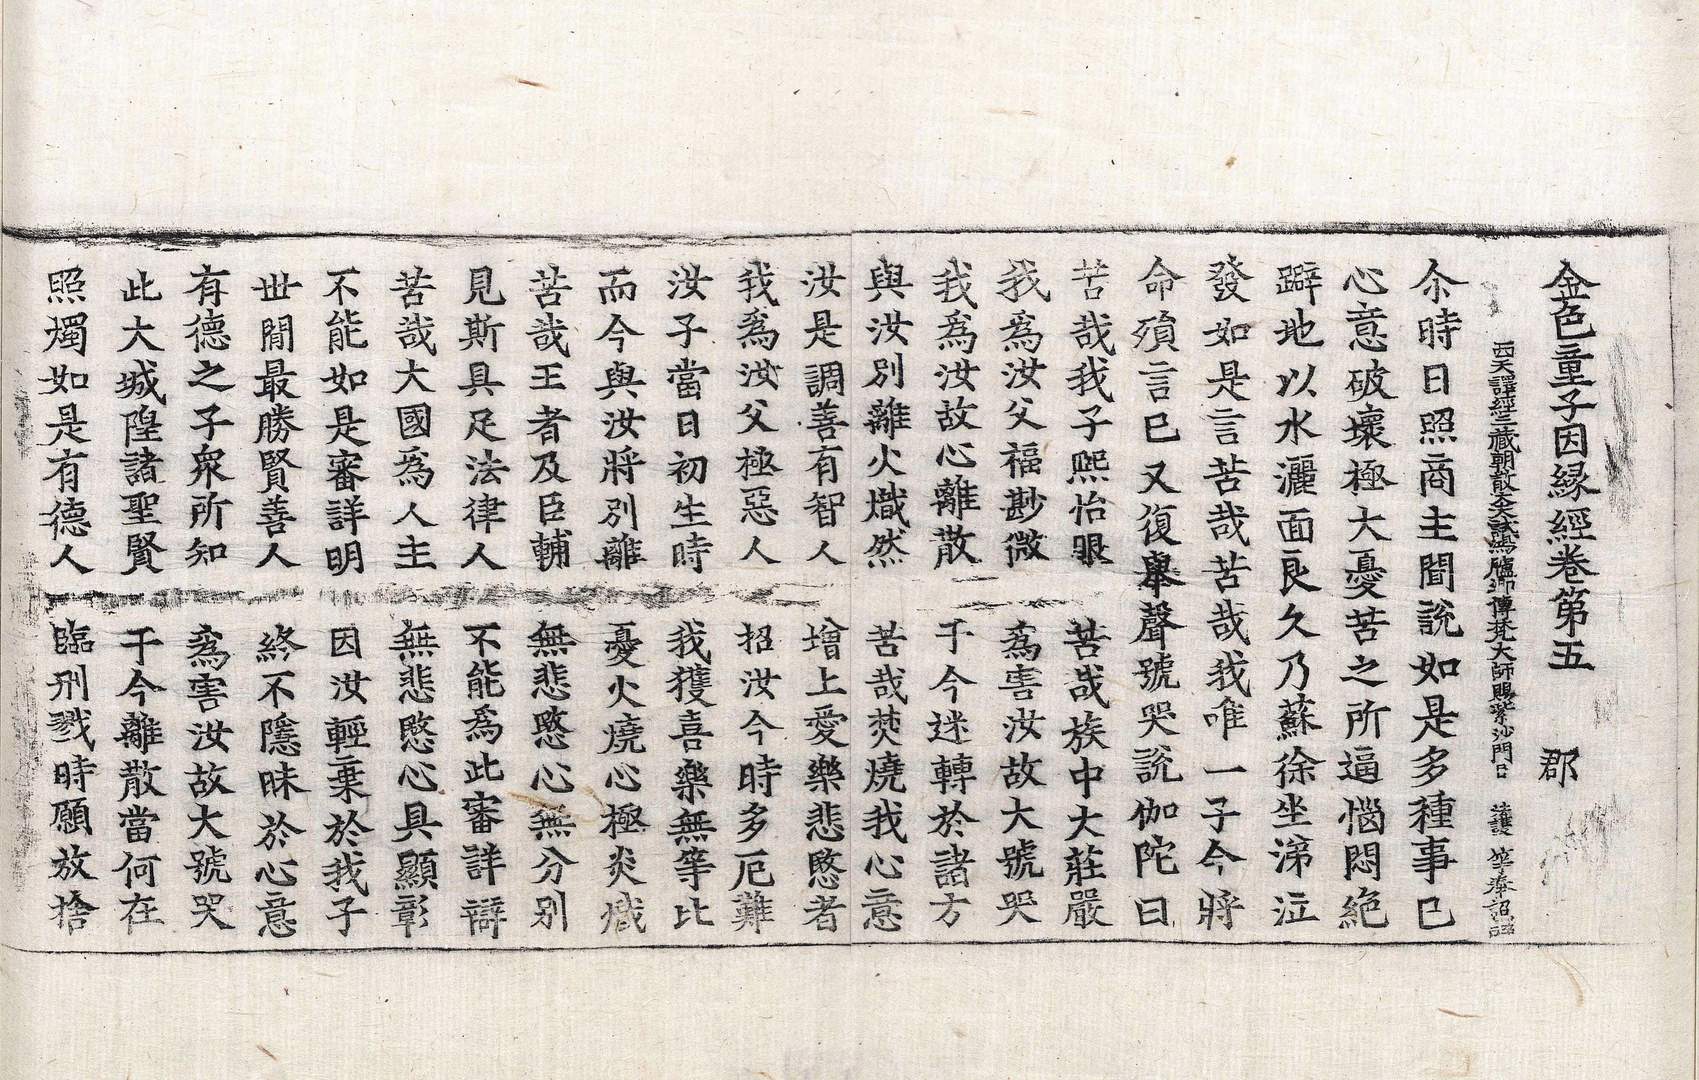 金色童子因緣經卷第五　郡
西天譯經三藏朝散大夫試鴻臚卿傳梵大師賜紫沙門臣　法護　等奉詔譯
尒時日照商主聞說如是多種事已
心意破壞極大憂苦之所逼惱悶絕
躃地以水灑面良久乃蘇徐坐涕泣
發如是言苦哉苦哉我唯一子今將
命殞言已又復舉聲號哭說伽陀曰
苦哉我子熙怡眼　苦哉族中大莊嚴
我爲汝父福尠微　爲害汝故大號哭
我爲汝故心離散　于今迷轉於諸方
與汝別離火熾然　苦哉焚燒我心意
汝是調善有智人　增上愛樂悲愍者
我爲汝父極惡人　招汝今時多厄難
汝子當日初生時　我獲喜樂無等比
而今與汝將別離　憂火燒心極炎熾
苦哉王者及臣輔　無悲愍心無分別
見斯具足法律人　不能爲此審詳辯
苦哉大國爲人主　無悲愍心具顯彰
不能如是審詳明　因汝輕棄於我子
世間最勝賢善人　終不隱昧於心意
有德之子衆所知　爲害汝故大號哭
此大城隍諸聖賢　于今離散當何在
照燭如是有德人　臨刑戮時願放捨